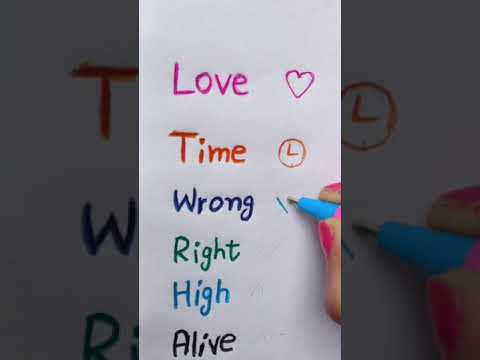 Love
Time
Wrong
Right
High
Alive